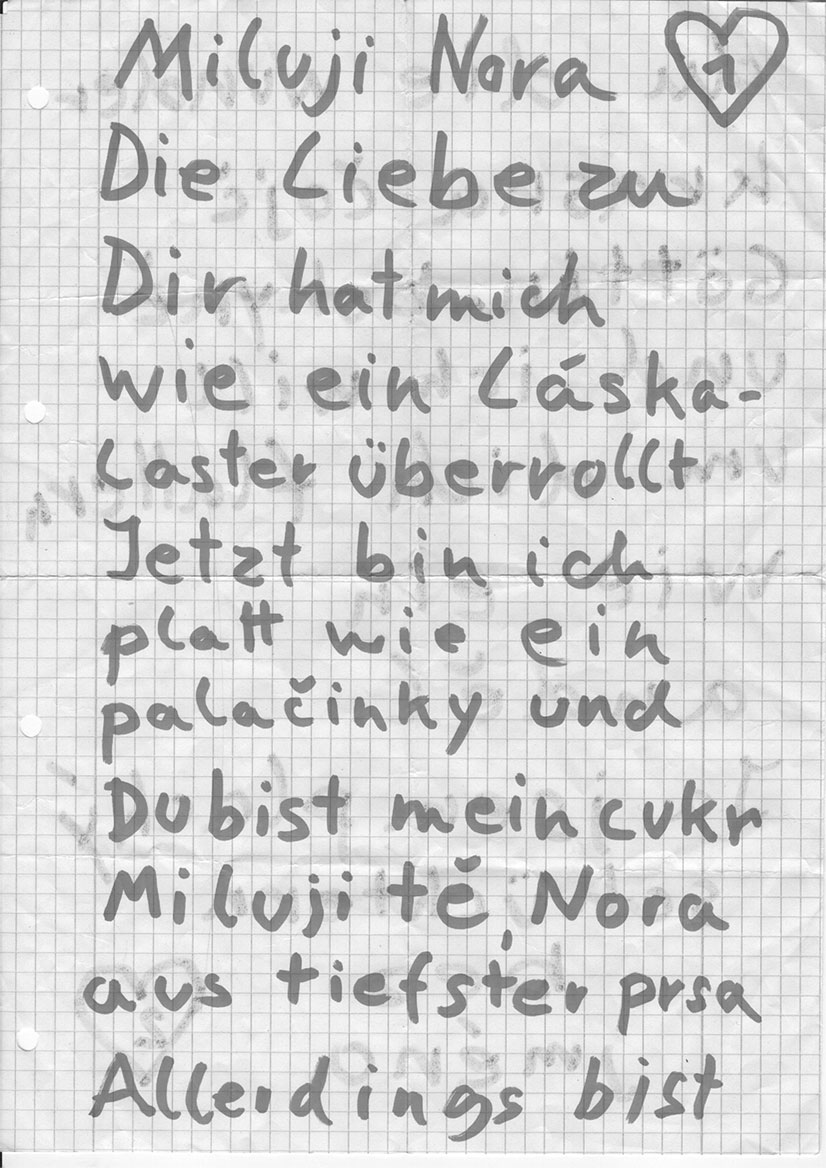 Miluji Nora 1
Die Liebe zu
Dir hat mich
wie ein Láska-
laster überrollt
Jetzt bin ich
platt wie ein
palačinky und
Du bist mein cukr
Miluji tě, Nora
aus tiefster prsa
Allerdings bist